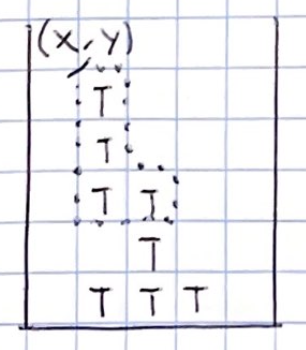 (X,Y)
T
T
T T
T
T T T